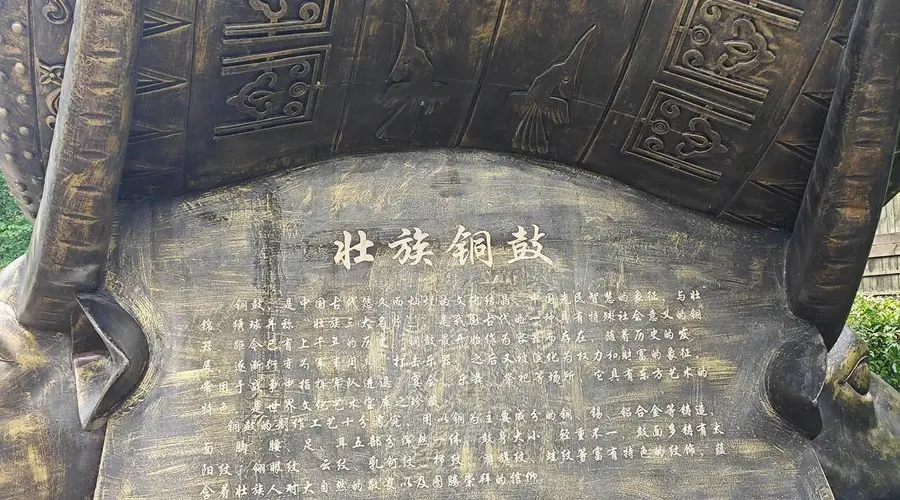 壮族铜鼓
铜鼓，是中国古代悠久而灿烂的文化结晶，中国先民智慧的象征，与壮
锦、绣球并称"壮族三大名片"，是我国古代的一种具有特殊社会意义的铜
器，距今已有上千年的历史。铜鼓最开始作为容器而存在，随着历史的发
展，逐渐衍变为军有用的打击乐器，之后又被演化为权力和财富的象征，
常用于战事中指挥军队进退、宴会、乐舞、祭祀等场所，它具有东方艺术的
特色，是世界文化艺术宝库之珍藏。
铜鼓的制作工艺十分考究，用以铜为主要成分的铜、锡、铝合金等铸造，
面、胸、腰、足、耳五部分浑然一体，鼓身大小、轻重不一，鼓面多铸有太
阳纹、翎眼纹、云纹、乳钉纹、栉纹、蛙纹等富有特色的纹饰，蕴
含着壮族人对大自然的敬畏以及图腾崇拜的信仰